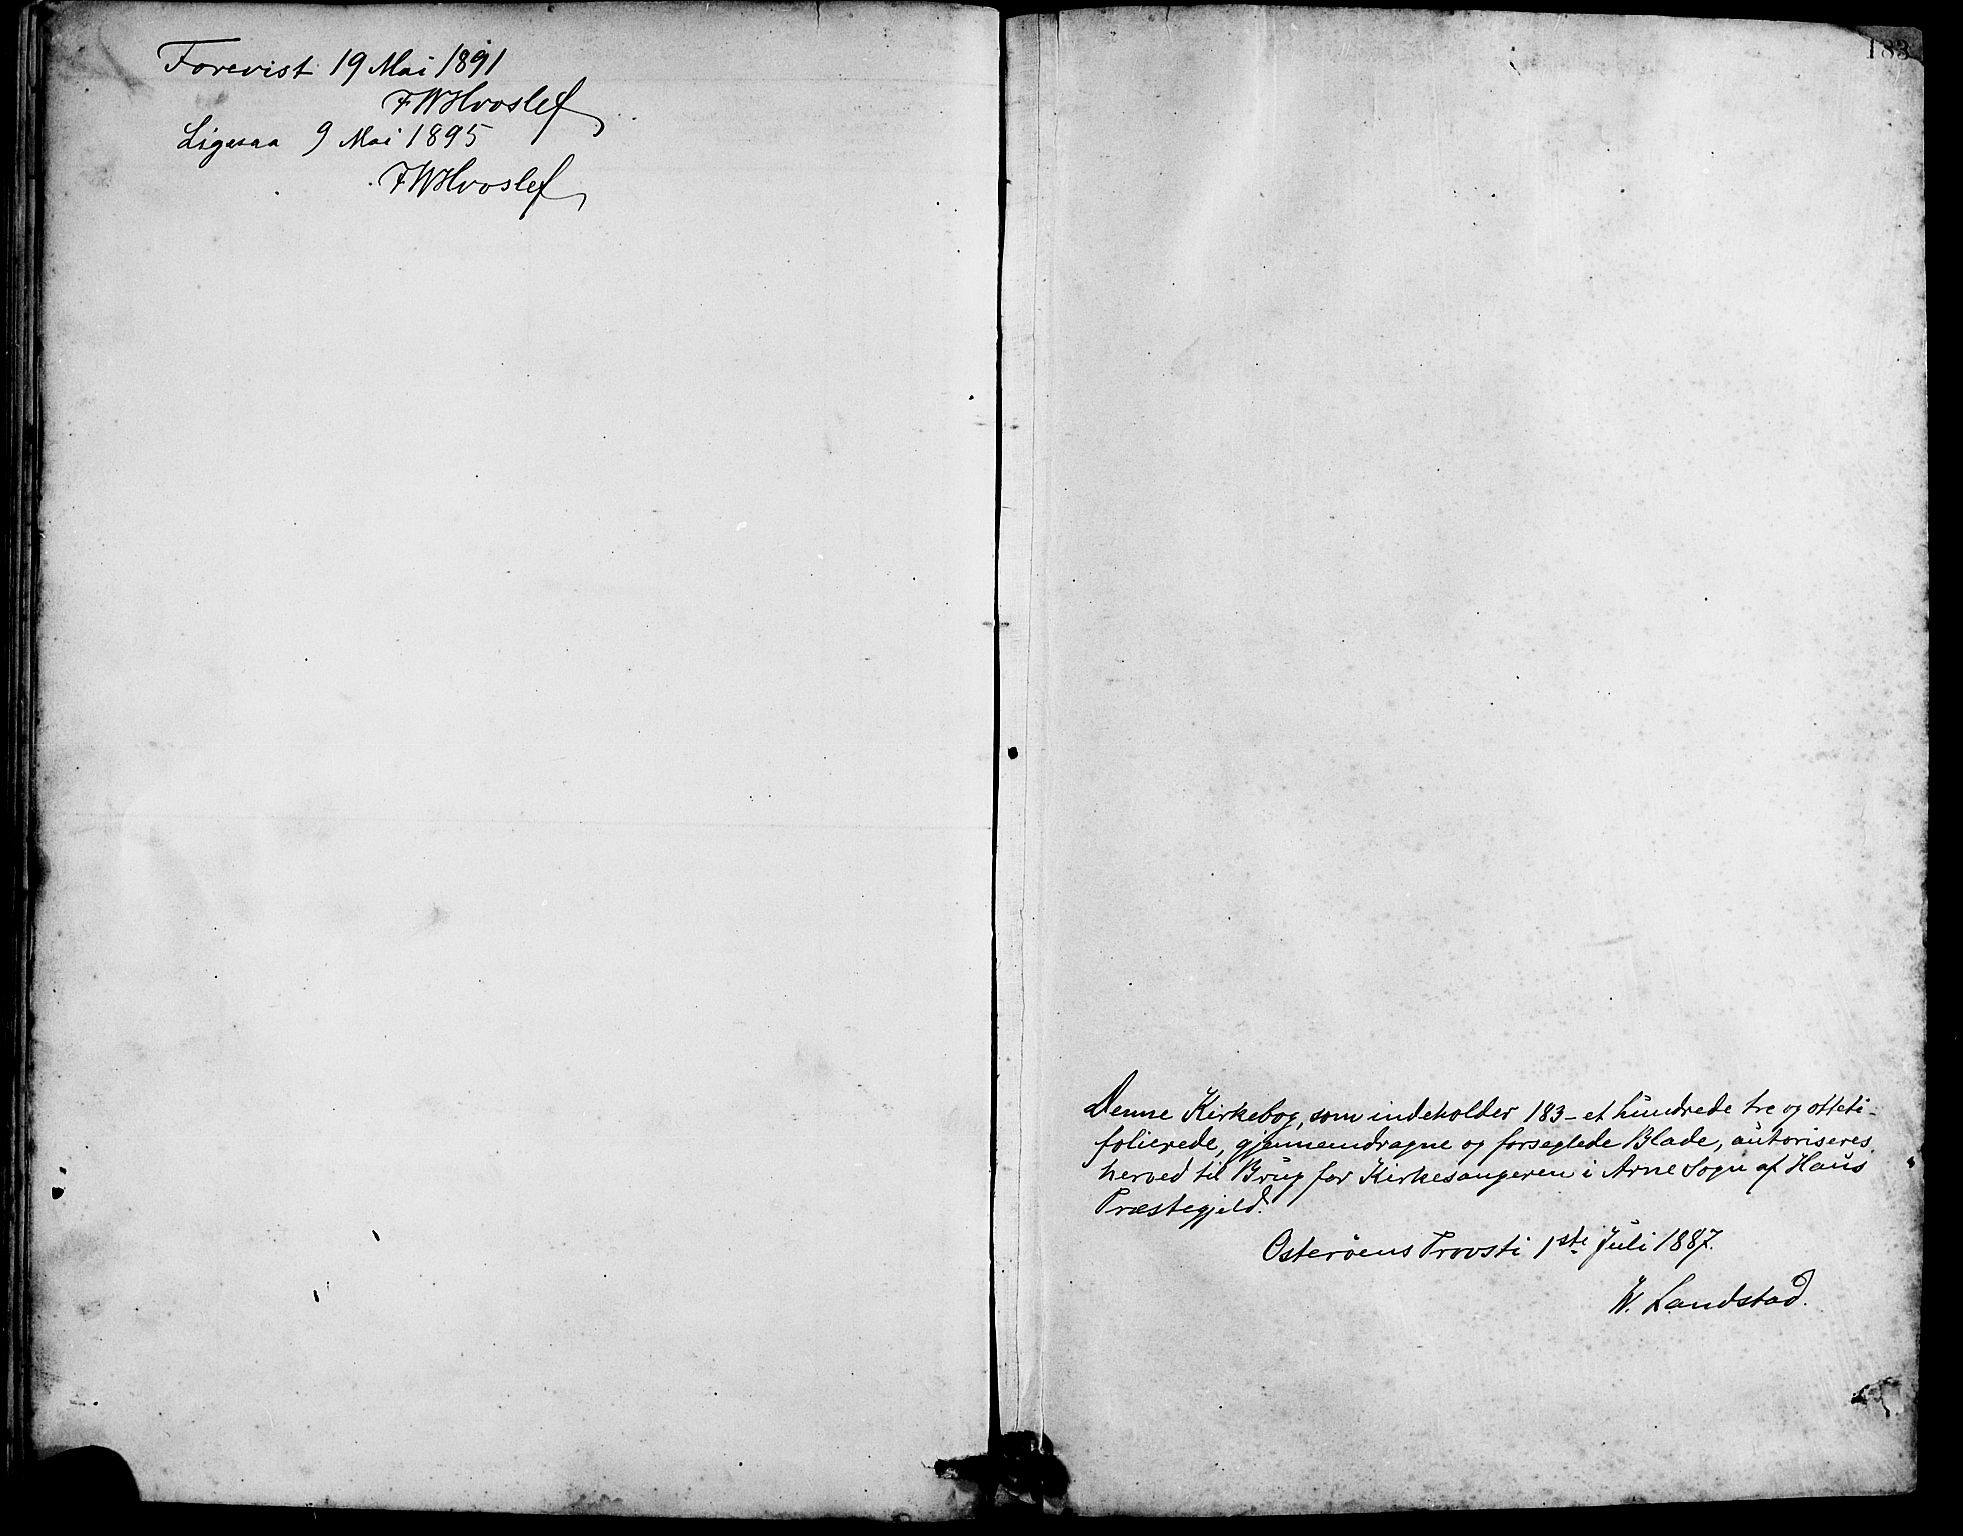 Forevist 19 Mai 1891
FWHvoslef
Ligesaa 9 Mai 1895
FWHvoslef
183
Denne Kirkebog, som indeholder 183 - et hundrede tre og otteti -
folierede, gjennemdragne og forseglede Blade, autoriseres
herved til Brug for Kirkesangeren i Arne Sogn af Haus
Præstegjeld.
Osterøens Provsti 1ste Juli 1887.
W. Landstad.